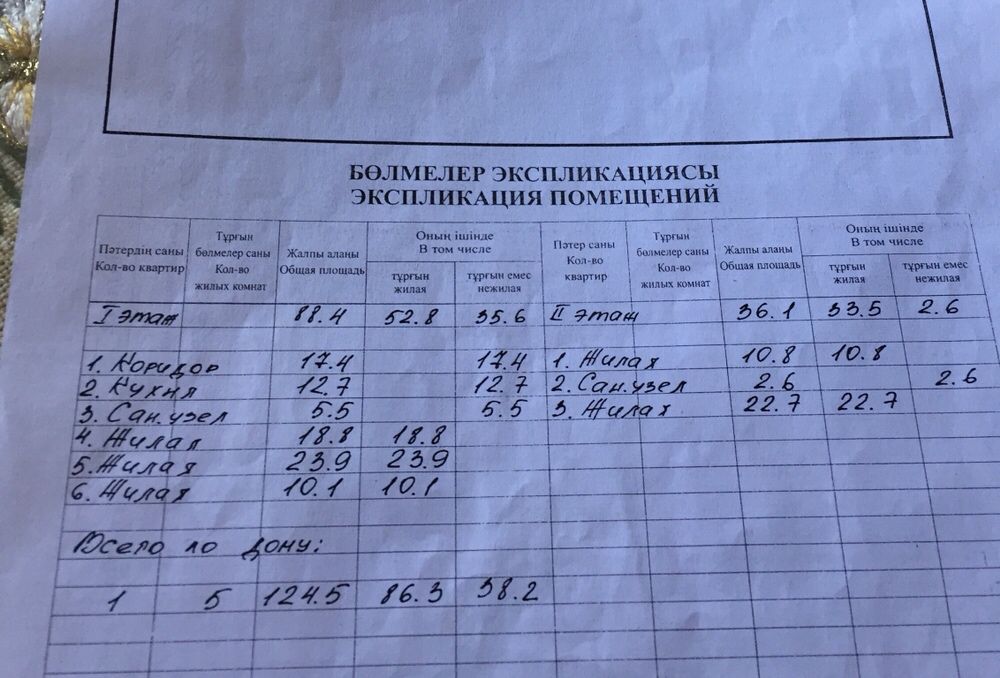 БӨЛМЕЛЕР ЭКСПЛИКАЦИЯСЫ
ЭКСПЛИКАЦИЯ ПОМЕЩЕНИЙ
Пәтердің саны Кол-во квартир Тұрғын бөлмелер саны Кол-во жилых комнат Жалпы аланы Общая площадь Оның ішінде В том числе тұрғын жилая тұрғын емес нежилая Пәтер саны Кол-во квартир Тұрғын бөлмелер саны Кол-во жилых комнат Жалпы аланы Общая площадь Оның ішінде В том числе тұрғын жилая тұрғын емес нежилая
I этаж 88.4 52.8 35.6 II этаж 36.1 33.5 2.6
1. Коридор 17.4 17.4 1. Жилая 10.8 10.8
2. Кухня 12.7 12.7 2. Сан.узел 2.6 2.6
3. Сан.узел 5.5 5.5 3. Жилая 22.7 22.7
4. Жилая 18.8 18.8
5. Жилая 23.9 23.9
6. Жилая 10.1 10.1
Всего по дому:
1 5 124.5 86.3 38.2